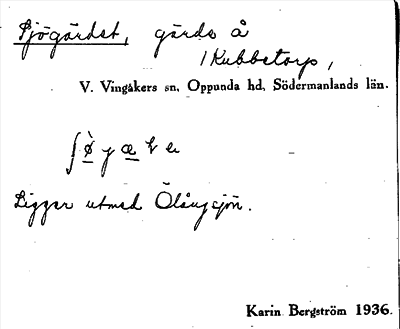 Sjögärdet, gärde å
/Kubbetorp,
V. Vingåkers sn, Oppunda hd, Södermanlands län.
Ligger utmed Ölångsjön.
Karin Bergström 1936.